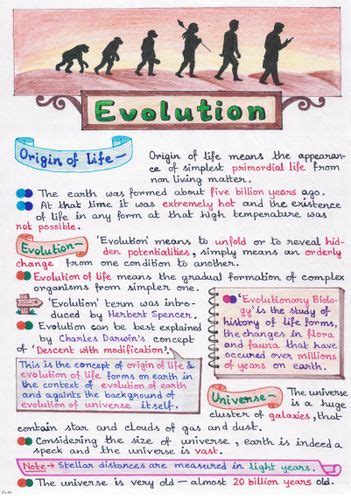 Evolution
Origin of life –
Origin of life means the appearan-
ce of simplest primordial life from
non living matter.
The earth was formed about five billion years ago.
At that time it was extremely hot and the existence
of life in any form at that high temperature was
not possible.
Evolution –
'Evolution' means to unfold or to reveal hid-
den potentialities, simply means an orderly
change from one condition to another.
Evolution of life means the gradual formation of complex
organisms from simpler one.
'Evolution' term was intro-
duced by Herbert Spencer.
Evolution can be best explained
by Charles Darwin's concept
of 'Descent with modification'.
This is the concept of origin of life &
evolution of life forms on earth in
the context of evolution of earth
and againts the background of
evolution of universe itself.
'Evolutionary Biolo-
gy' is the study of
history of life forms,
the changes in flora
and fauna that have
occured over millions
of years on earth.
Universe –
The universe
is a huge
cluster of galaxies, that
contain star and clouds of gas and dust.
Considering the size of universe, earth is indeed a
speck and the universe is vast.
Note → Stellar distances are measured in light years.
The universe is very old – almost 20 billion years old.